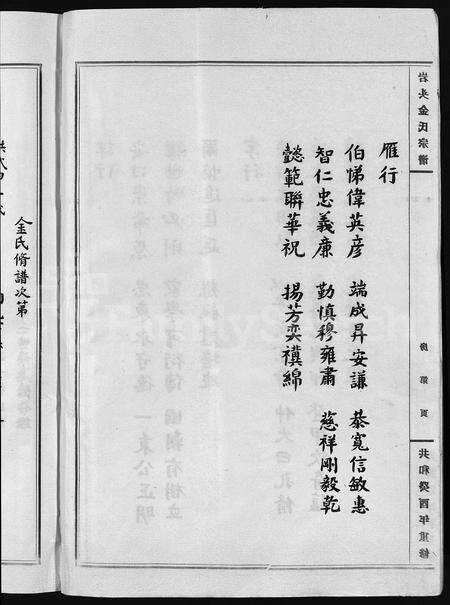 岩头金氏宗譜
共和癸酉年重修
雁行
伯悌偉英彦 端成昇安謙 恭寬信敏惠
智仁忠義廉 勤慎穆雍肅 慈祥剛毅乾
懿範聯華祝 揚芳奕禩綿
金氏脩譜次第